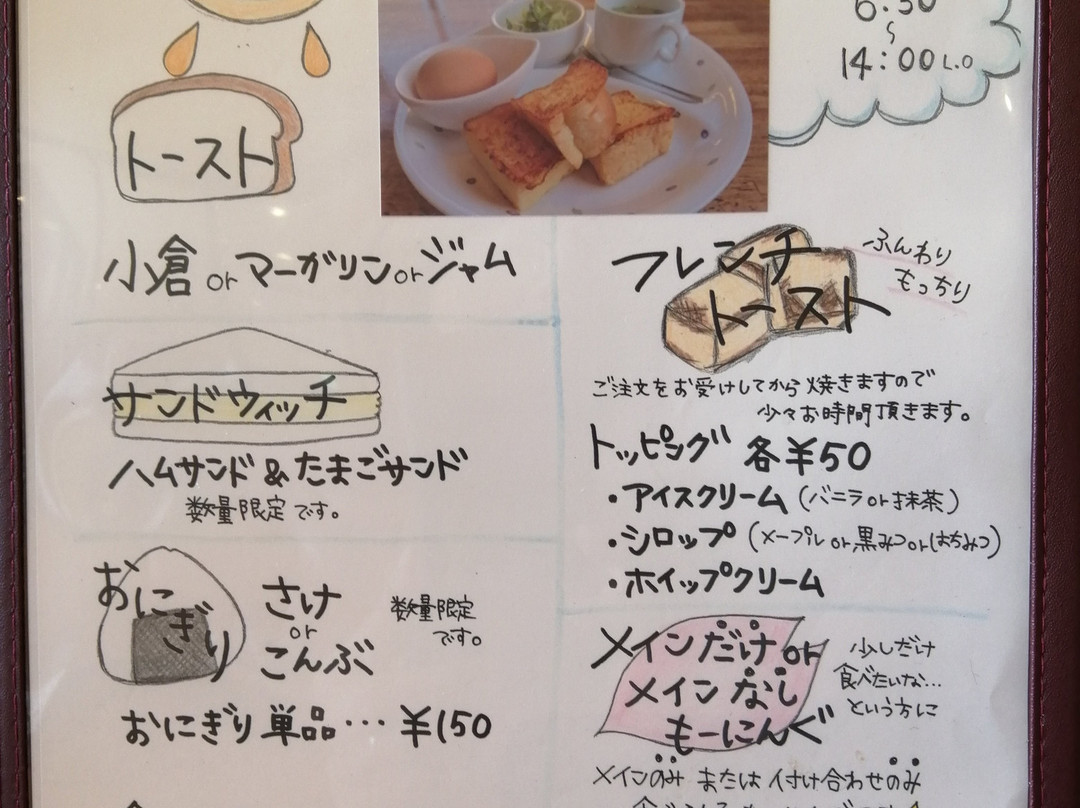 6:30
〜
14:00 L.O
トースト
小倉 or マーガリン or ジャム
サンドウィッチ
ハムサンド & たまごサンド
数量限定です。
おにぎり
さけ
or
こんぶ
数量限定
です。
おにぎり単品… ¥150
フレンチ
トースト
ふんわり
もっちり
ご注文をお受けしてから焼きますので
少々お時間頂きます。
トッピング 各¥50
・アイスクリーム (バニラor抹茶)
・シロップ (メープルor黒みつorはちみつ)
・ホイップクリーム
メインだけor
メインなし
もーにんぐ
少しだけ
食べたいな…
という方に
メインのみ または 付け合わせのみ